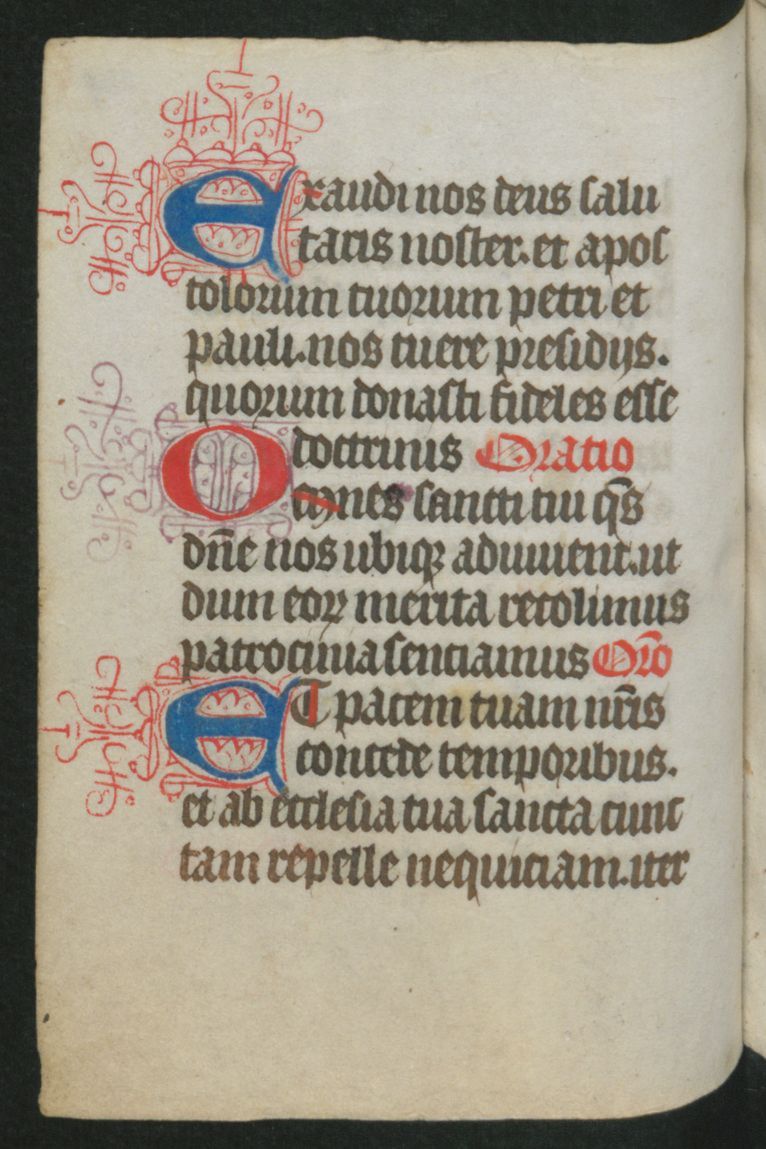 Exaudi nos deus salu
taris noster. et apos
tolorum tuorum petri et
pauli. nos tuere presidiis.
quorum donasti fideles esse
doctrinis Oratio
Omnes sancti tui qs̄
dn̄e nos ubiqꝫ adiuuent. ut
dum eoꝝ merita recolimus
patrocinia senciamus Or̄o
ET pacem tuam nr̄is
concede temporibus.
et ab ecclesia tua sancta cunc
tam repelle nequiciam. iter